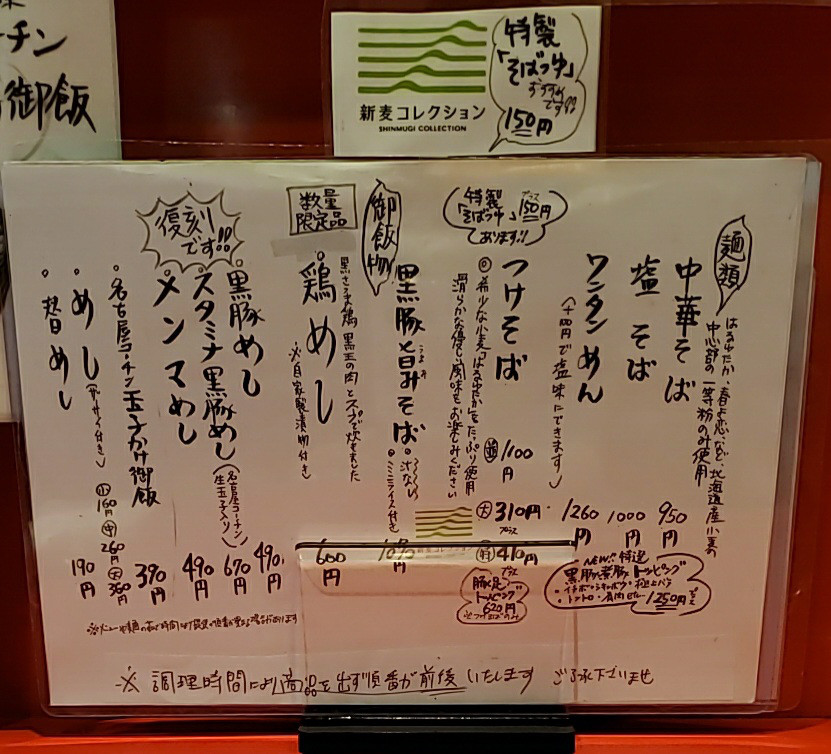 チン
御飯
新麦コレクション
SHINMUGI COLLECTION
特製
「そばつゆ」
おすすめ
です!!
150円
麺類
はるゆたか・春よ恋、など、北海道産小麦の
中心部の一等粉のみ使用
中華そば 950円
塩そば 1000円
ワンタンめん 1260円
(+円で塩味にできます)
特製
「そばつゆ」プラス150円
あります!!
つけそば
◎希少な小麦「はるゆたか」をたっぷり使用
滑らかな優しい風味をお楽しみください
並 1100円
大 プラス310円
特 プラス410円
NEW!! 特選
黒豚煮豚トッピング
プラス1250円
豚足
トッピング
プラス620円
御飯物
黒豚旨みそば。汁なし
◎ミニライス付き
1090円
数量
限定品
・鶏めし 600円
黒さつま鶏 黒王の肉とスープで炊きました
※自家製漬物付き
復刻
です!!
・黒豚めし 490円
・スタミナ黒豚めし 670円
(名古屋コーチン
生玉子入り)
・メンマめし 490円
・名古屋コーチン玉子かけ御飯 390円
・めし(ザーサイ付き)
小 160円 中 260円 大 360円
・替めし 190円
※調理時間により商品を出す順番が前後いたします ご了承下さいませ